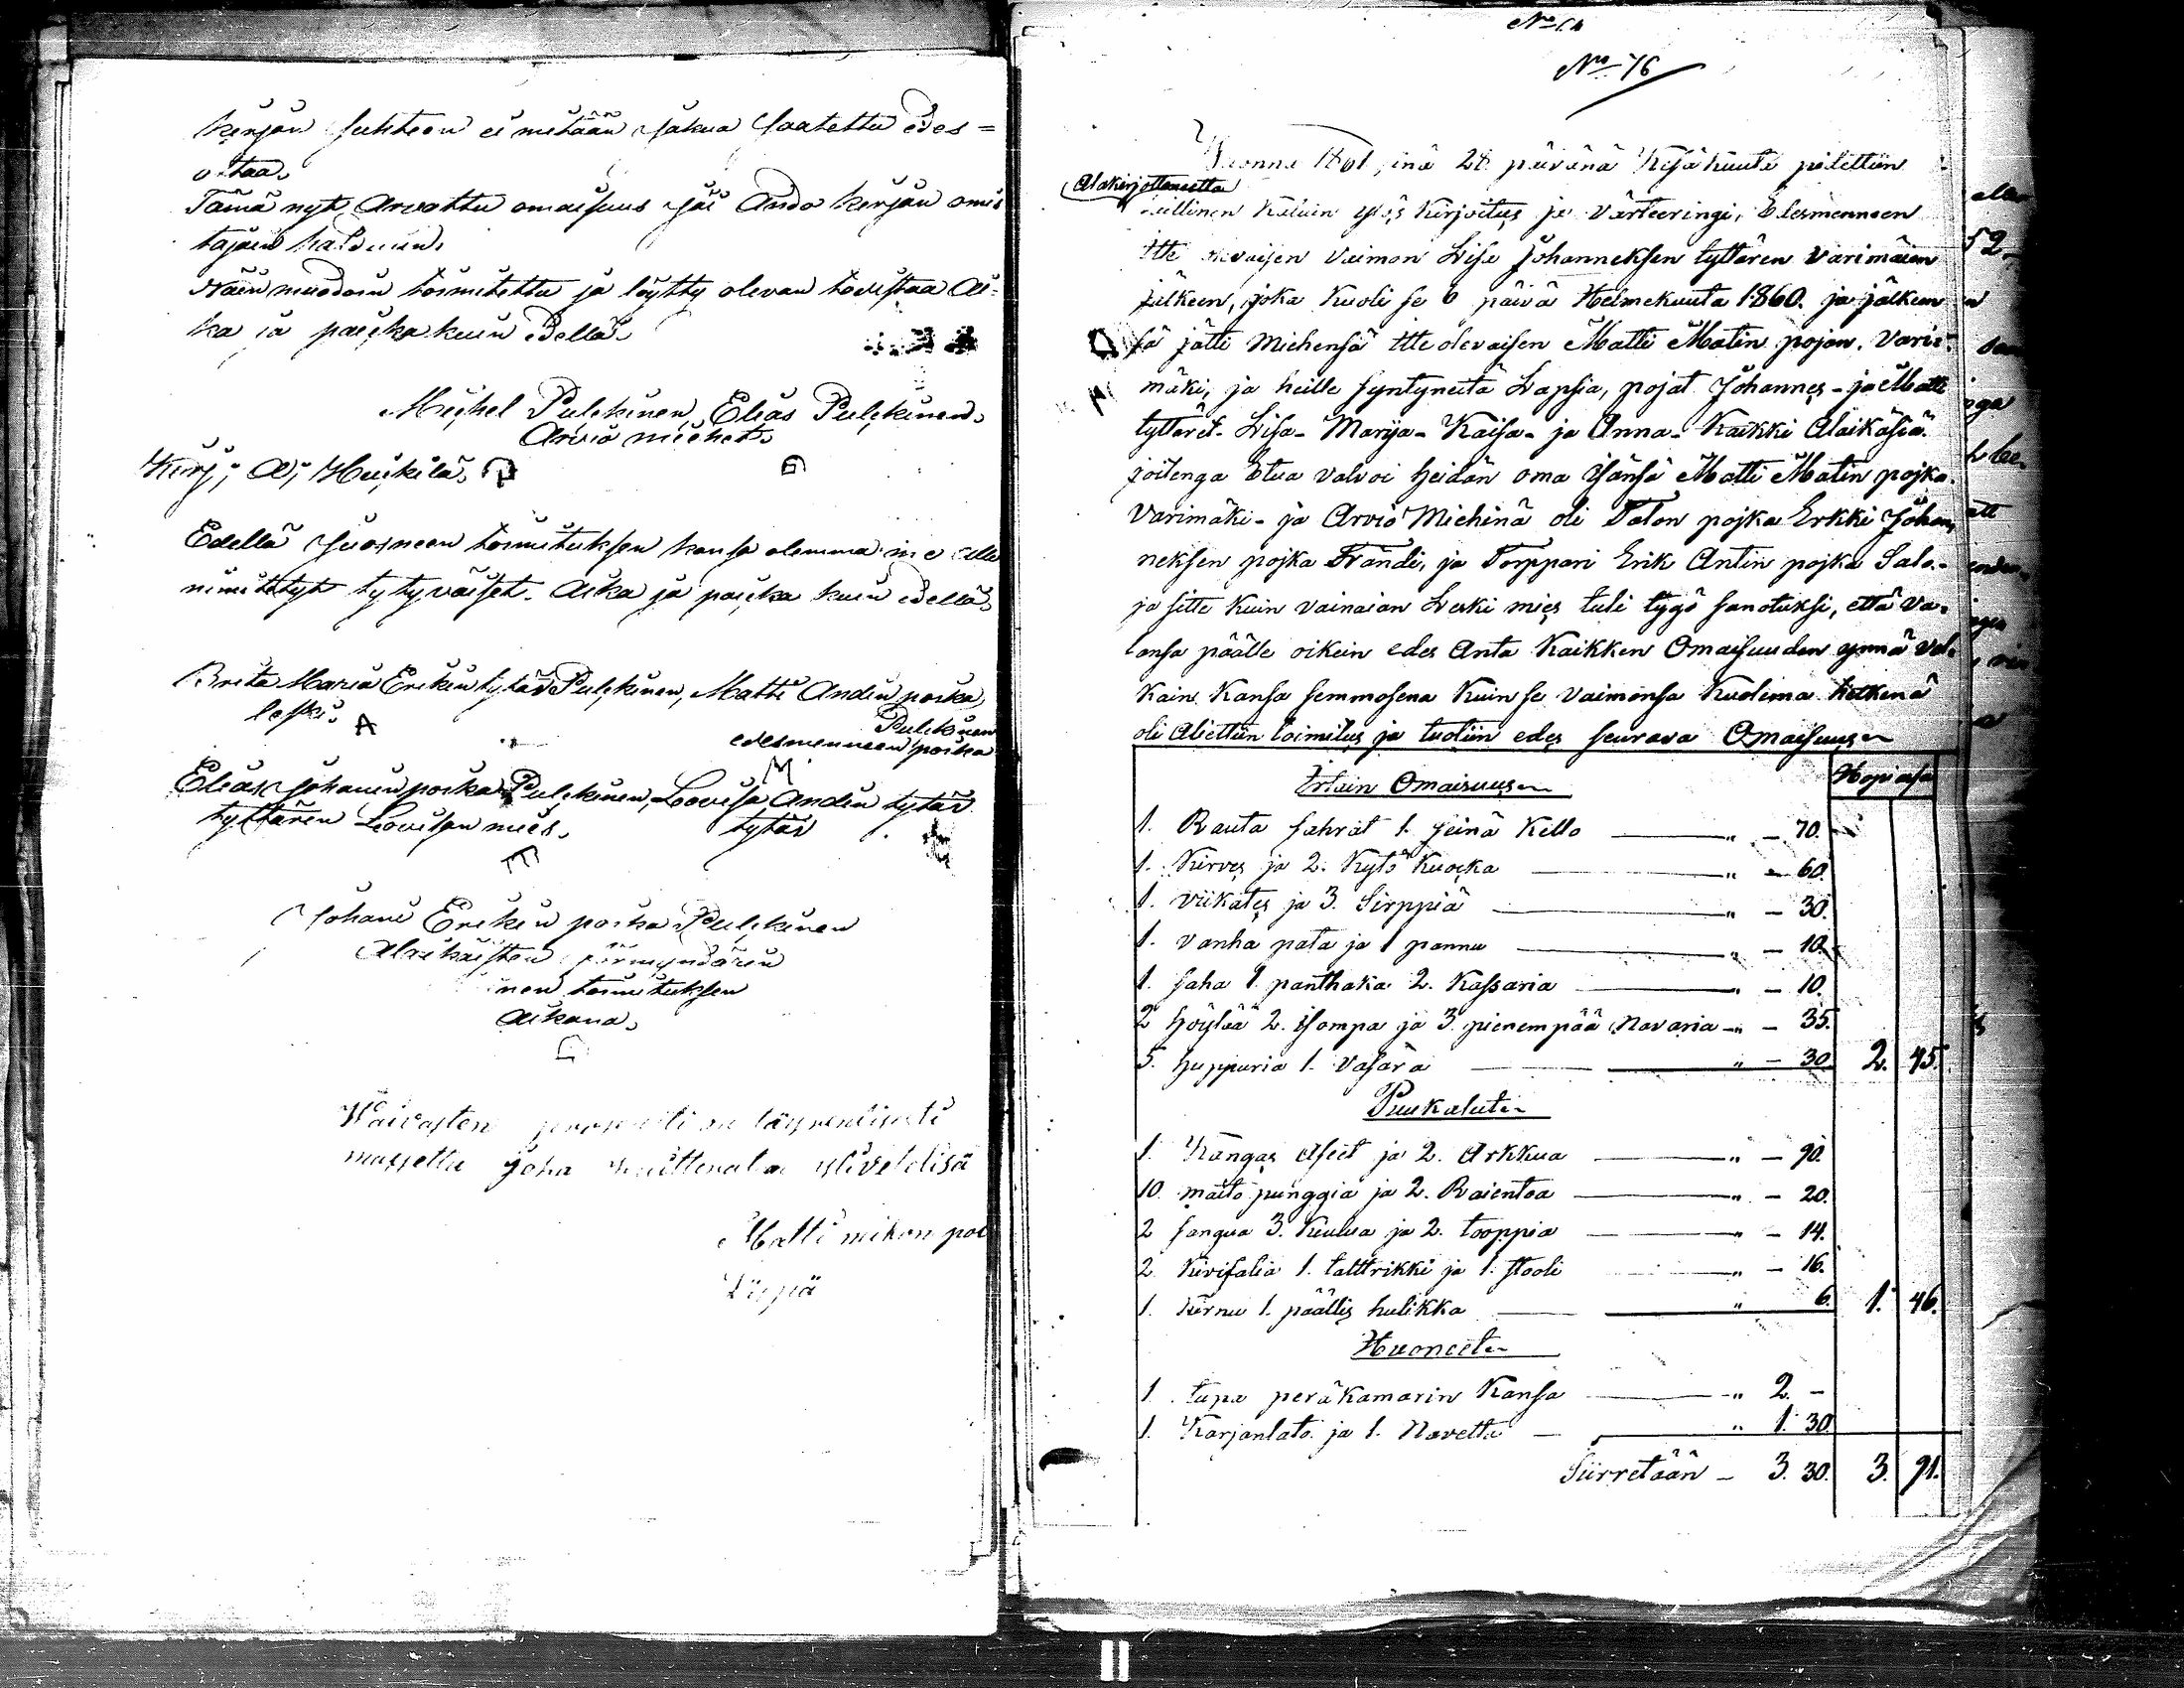 kirjan suhteen ei mitään jakua saatettu edes=
ottaa.
Tämä nyt Arvattu omaisuus jäi Ando kirjan omis
tajain haltuun.
Näin muodoin toimitettu ja löytty olevan todistaa Ai=
ka ja paicka kuin edellä.
Michel Pulckinen, Elias Pulckinen.
Arvio miehet.
Kirj; A; Heickilä.
Edellä seisneen toimituksen kansa olemma me alla
nimitetyt tytyväiset. Aika ja paicka kuin edellä
Brita Maria Erickin tytär Pulckinen, Matti Andin poika
leski.
Pulckinen
edesmenneen poika
Elias Johanin poika Pulckinen, Lovisa Andin tytär
tyttären Lovisan mies.
tytär
Johani Erickin poika Pulckinen
Alaikäisten
toimituksen
Aikana.
Waivasten täysrentisesti
maxettu
Matti mikon poi
No 76
Vuonna 1861, inä 28 päivänä Kesäkuuta pidettiin
Alakirjottaneetta
Laillinen Kaluin ylös kirjoitus ja värteeringi, Edesmenneen
Itte olevaisen Vaimon Lisa Johanneksen tyttären Varimäen
jälkeen, joka kuoli se 6 päivä Helmekuuta 1860. ja jälkeen
sä jätti Miehensä Itte olevaisen Matti Matin pojan. Vari=
mäki, ja heille syntyneitä Lapsia, pojat Johannes - ja Matti
tyttäret. Lisa - Marija - Kaisa - ja Anna - Kaikki Alaikäsiä.
joitenga Etua valvoi heidän oma Isänsä Matti Matin pojka.
Varimäki - ja Arvio Miehinä oli Talon pojka Erkki Johan,
neksen pojka Frändi, ja Torppari Erik Antin pojka Salo. -
ja sitte kuin vainaian Leski mies tuli tygö sanotuksi, että Va=
lansa päälle oikein edes Anta Kaikken Omaisuuden ynnä Vel=
kain Kansa semmosena kuin se vaimonsa Kuolima hetkenä
oli Aliettiin toimitus ja tuotiin edes seurava Omaisuus
Irtain Omaisuus
Hopiasa
1. Rauta sahrat 1. seinä Kello " - 70.
1. Kirves ja 2. Kytö Kuocka " - 60.
1. viikates ja 3. Sirppiä " - 30.
1. vanha pata ja 1 pannu " - 10.
1. saha 1. panthaka 2. Kassaria " - 10.
2 höylää 2. isompa ja 3. pienempää Navaria " - 35.
5. huppuria 1. Vasara " - 30. 2. 45.
Puukalut
1. Kangas Aseet ja 2. Arkkua " - 90.
10. maito punggia ja 2. Raientoa " - 20.
2 sangua 3. Kiulua ja 2. tooppia " - 14.
2. kivisalia 1. talttrikki ja 1. stooli " - 16.
1. kirnu 1. päällis hulikka " 6. 1. 46.
Huoneet
1. tupa peräkamarin Kansa " 2. -
1. Karjanlato ja 1. Navetta " 1. 30.
Siirretään - 3. 30. 3. 91.